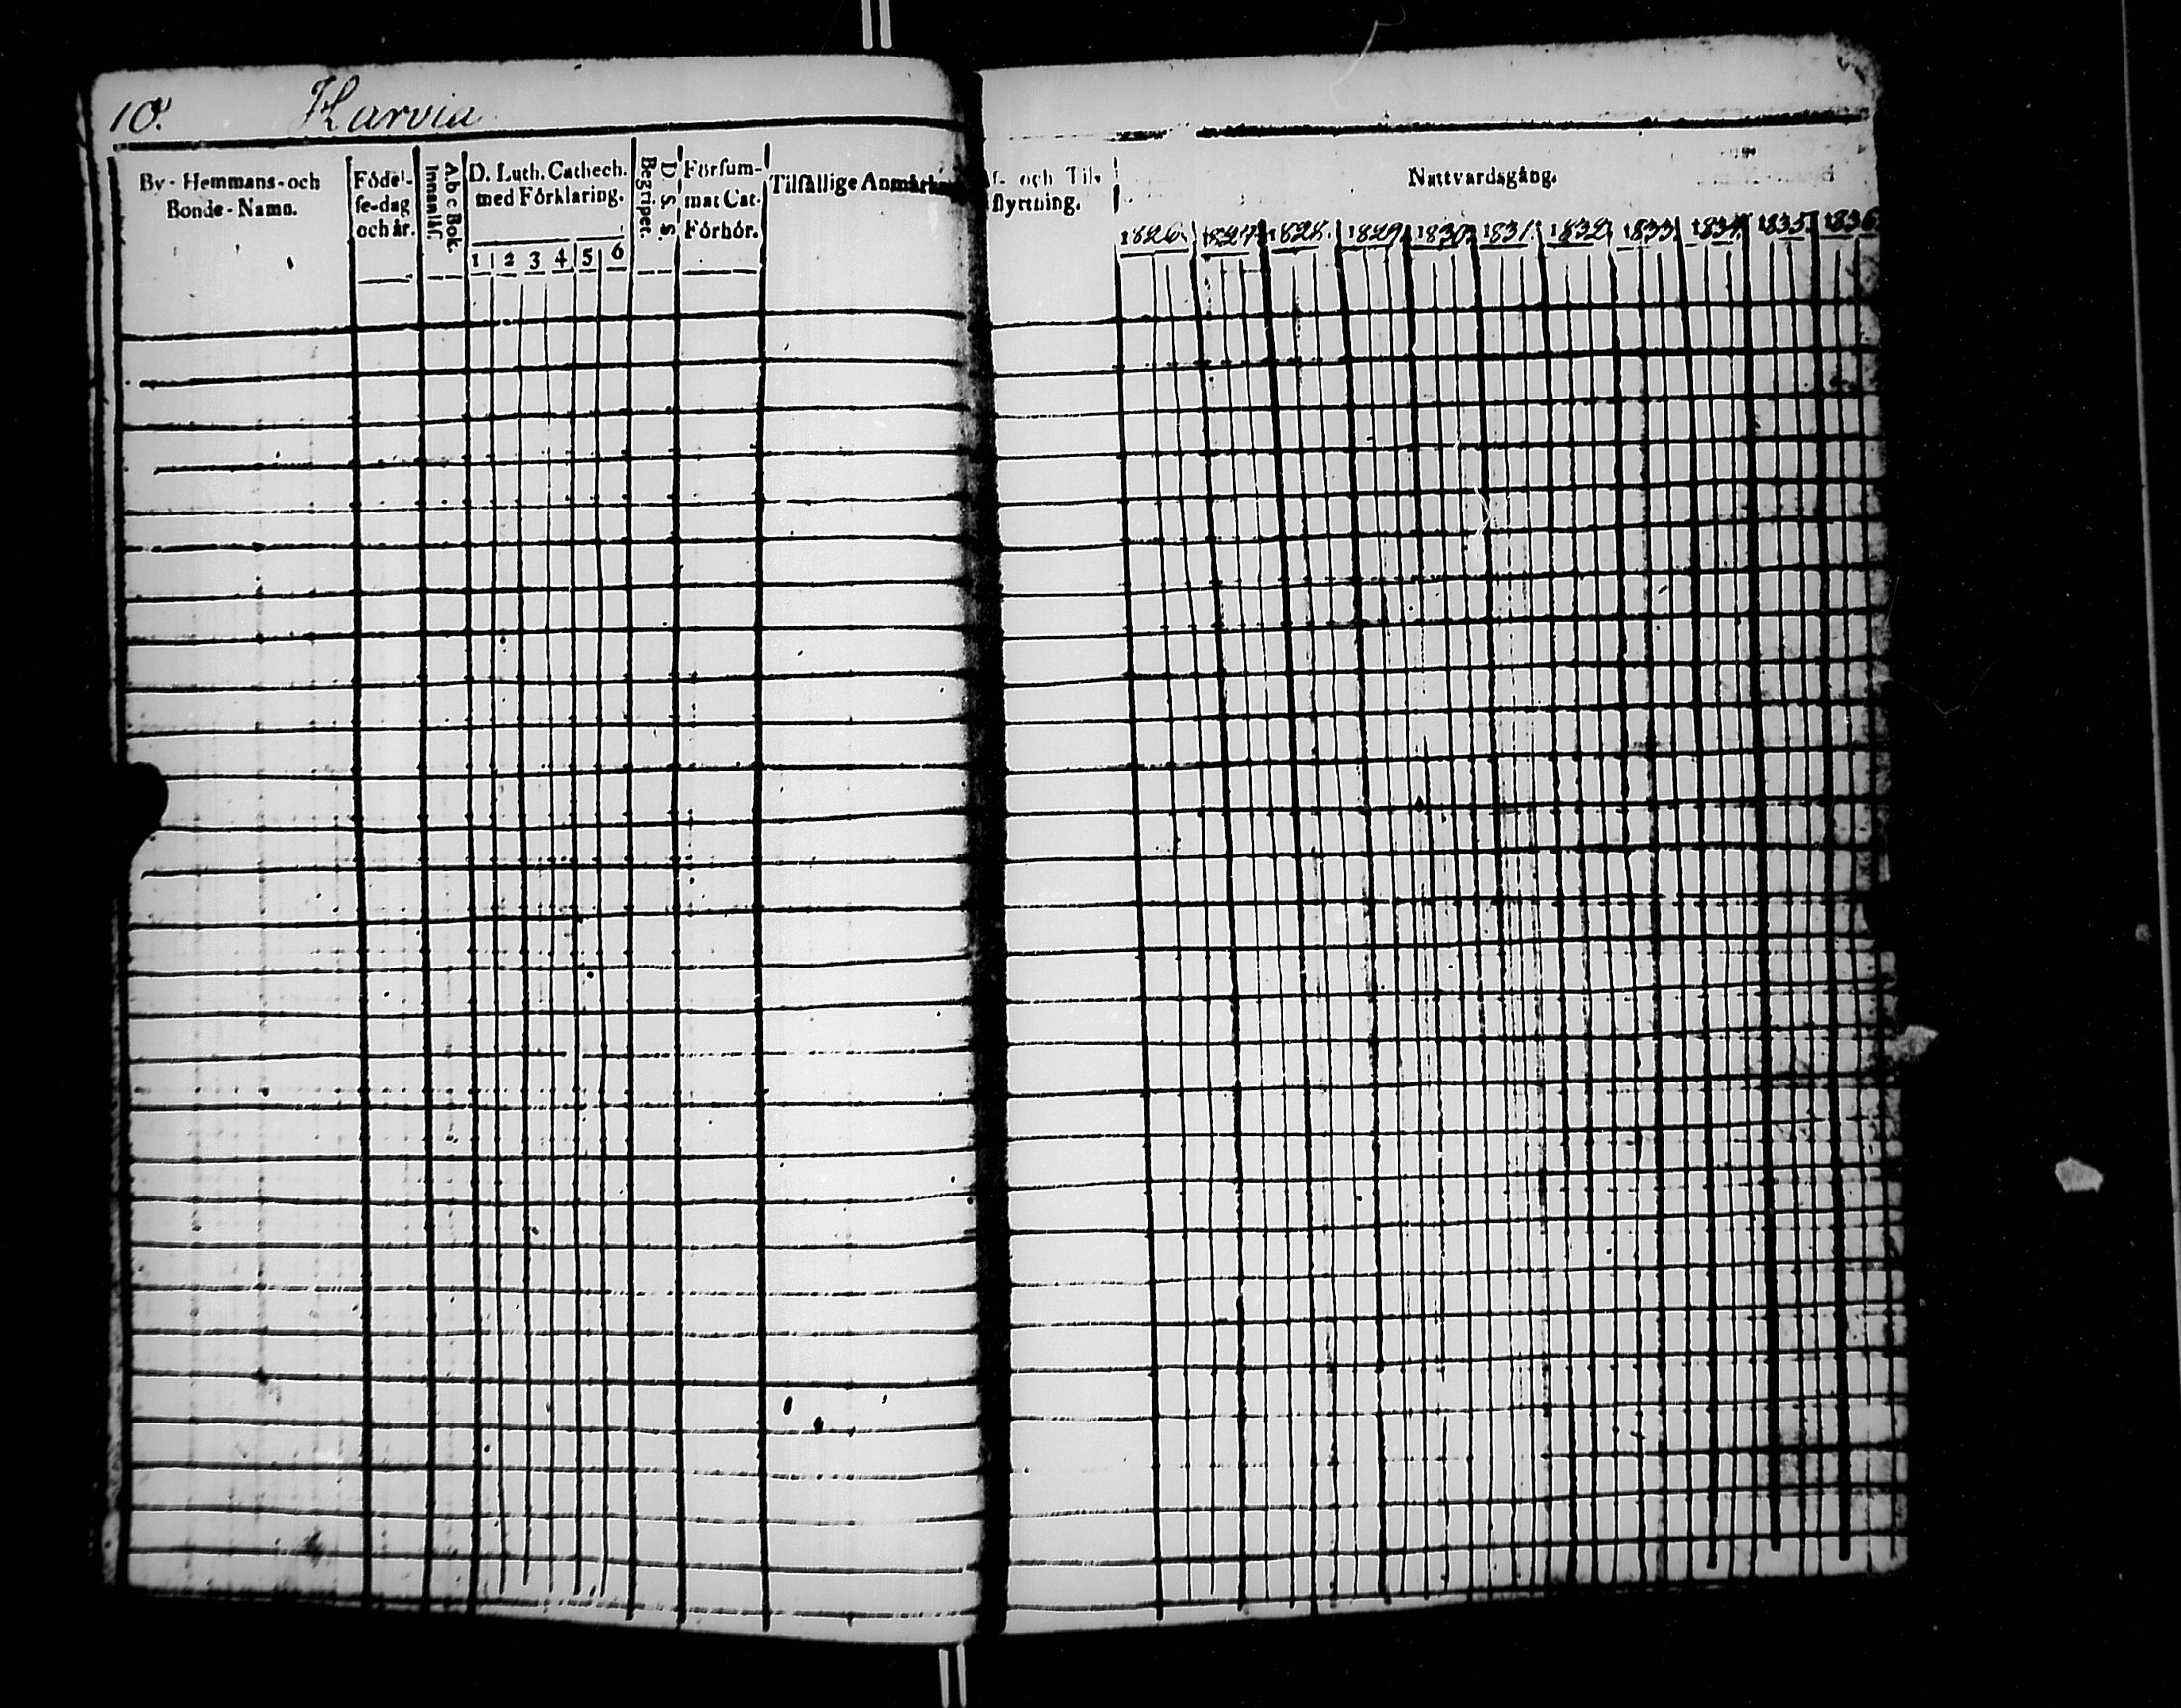 10. Karvia
By-Hemmans-och
Bonde-Namn.
Födel-
se-dag
och år.
A b c Bok.
Innanläs.
D. Luth. Cathech.
med Förklaring.
1 2 3 4 5 6
D. S. S.
Begripet.
Försum-
mat Cat.
Förhör.
Tilfällige Anmärkn
f- och Til-
flyttning.
Nattvardsgång.
1826. 1827. 1828. 1829. 1830. 1831. 1832. 1833. 1834. 1835. 1836.